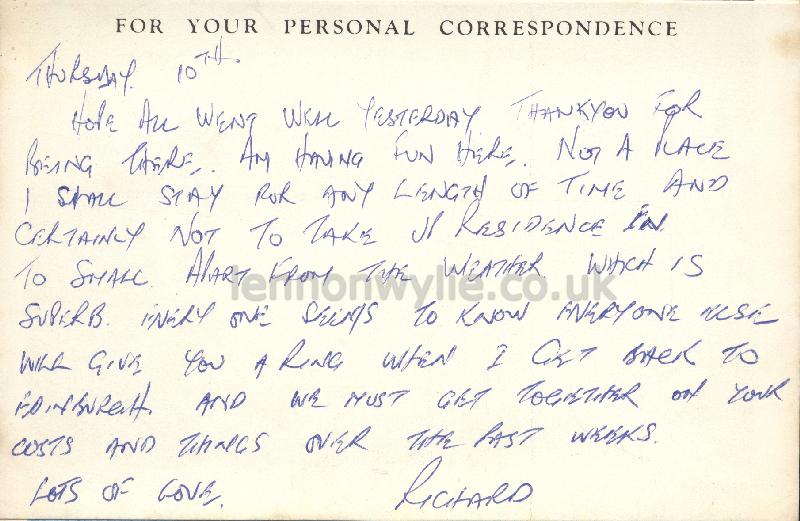 FOR YOUR PERSONAL CORRESPONDENCE
THURSDAY. 10TH.
HOPE ALL WENT WELL YESTERDAY THANKYOU FOR
BEING THERE. AM HAVING FUN HERE. NOT A PLACE
I SHALL STAY FOR ANY LENGTH OF TIME AND
CERTAINLY NOT TO TAKE UP RESIDENCE IN.
TO SMALL. APART FROM THE WEATHER WHICH IS
lennonwylie.co.uk
SUPERB. EVERY ONE SEEMS TO KNOW EVERYONE ELSE
WILL GIVE YOU A RING WHEN I GET BACK TO
EDINBURGH. AND WE MUST GET TOGETHER ON YOUR
COSTS AND THINGS OVER THE PAST WEEKS.
LOTS OF LOVE. RICHARD